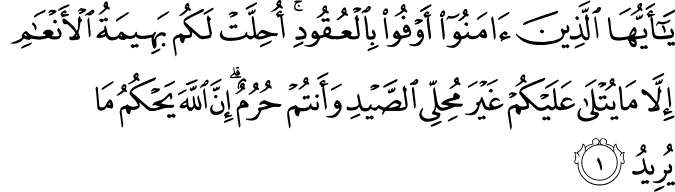 يَٰٓأَيُّهَا ٱلَّذِينَ ءَامَنُوٓا۟ أَوْفُوا۟ بِٱلْعُقُودِ ۚ أُحِلَّتْ لَكُم بَهِيمَةُ ٱلْأَنْعَٰمِ
إِلَّا مَا يُتْلَىٰ عَلَيْكُمْ غَيْرَ مُحِلِّى ٱلصَّيْدِ وَأَنتُمْ حُرُمٌ ۗ إِنَّ ٱللَّهَ يَحْكُمُ مَا
يُرِيدُ ١